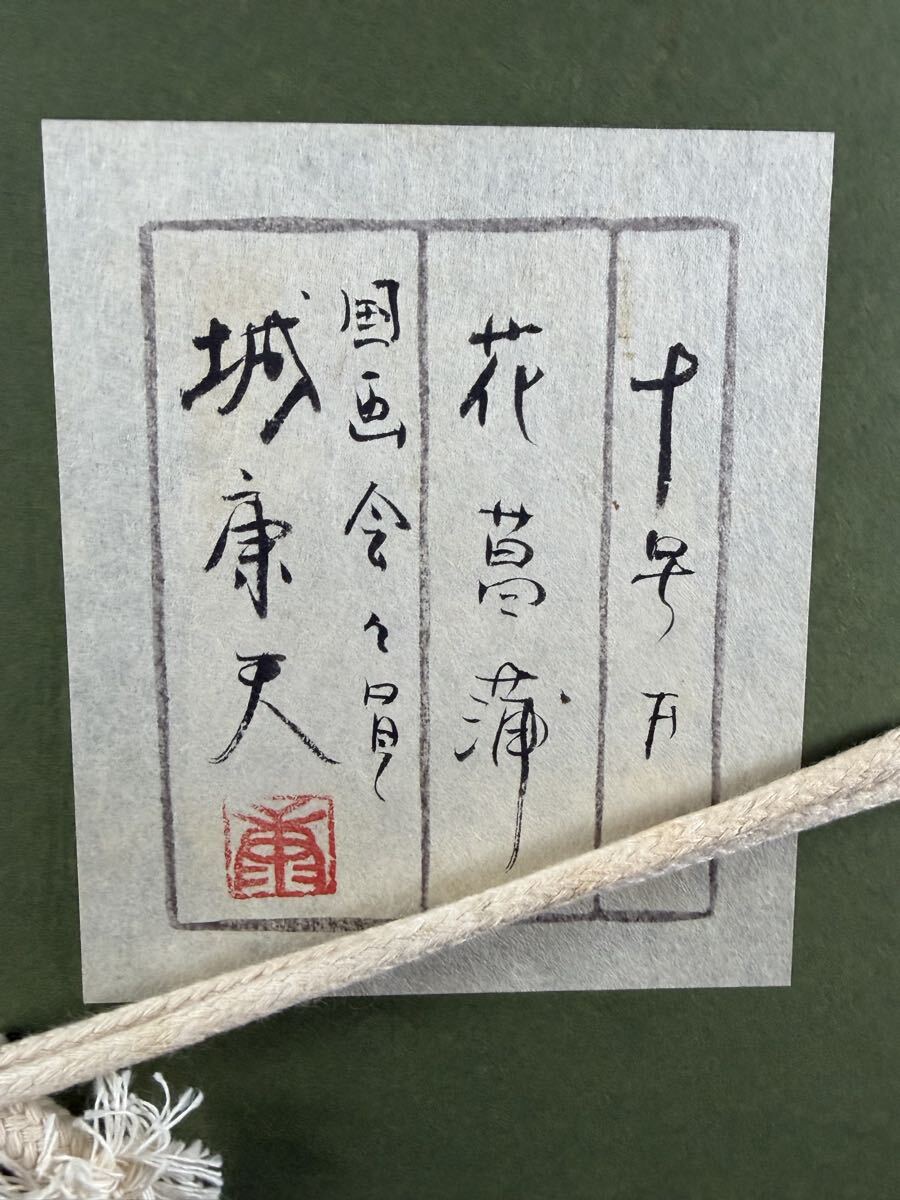 十号
花菖蒲
国画会々員
城康夫
康